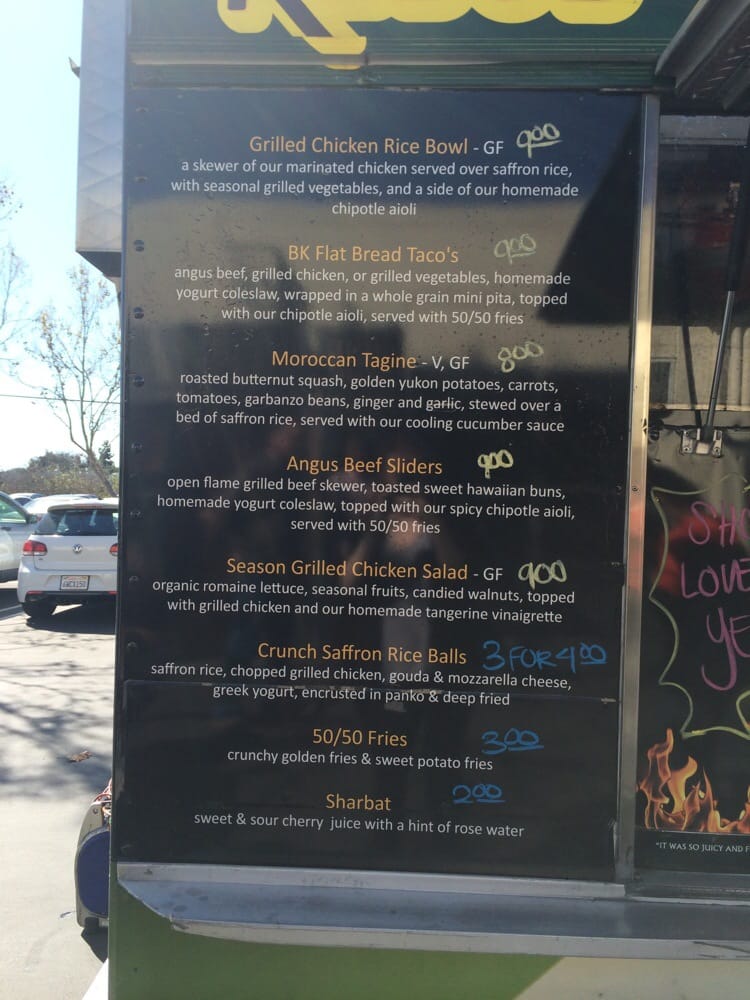 Grilled Chicken Rice Bowl - GF 900
a skewer of our marinated chicken served over saffron rice,
with seasonal grilled vegetables, and a side of our homemade
chipotle aioli
BK Flat Bread Taco's 900
angus beef, grilled chicken, or grilled vegetables, homemade
yogurt coleslaw, wrapped in a whole grain mini pita, topped
with our chipotle aioli, served with 50/50 fries
Moroccan Tagine - V, GF 800
roasted butternut squash, golden yukon potatoes, carrots,
tomatoes, garbanzo beans, ginger and garlic, stewed over a
bed of saffron rice, served with our cooling cucumber sauce
Angus Beef Sliders 900
open flame grilled beef skewer, toasted sweet hawaiian buns,
homemade yogurt coleslaw, topped with our spicy chipotle aioli,
served with 50/50 fries
Season Grilled Chicken Salad - GF 900
organic romaine lettuce, seasonal fruits, candied walnuts, topped
with grilled chicken and our homemade tangerine vinaigrette
Crunch Saffron Rice Balls 3 FOR 400
saffron rice, chopped grilled chicken, gouda & mozzarella cheese,
greek yogurt, encrusted in panko & deep fried
50/50 Fries 300
crunchy golden fries & sweet potato fries
Sharbat 200
sweet & sour cherry juice with a hint of rose water
LOVE
YE
"IT WAS SO JUICY AND F